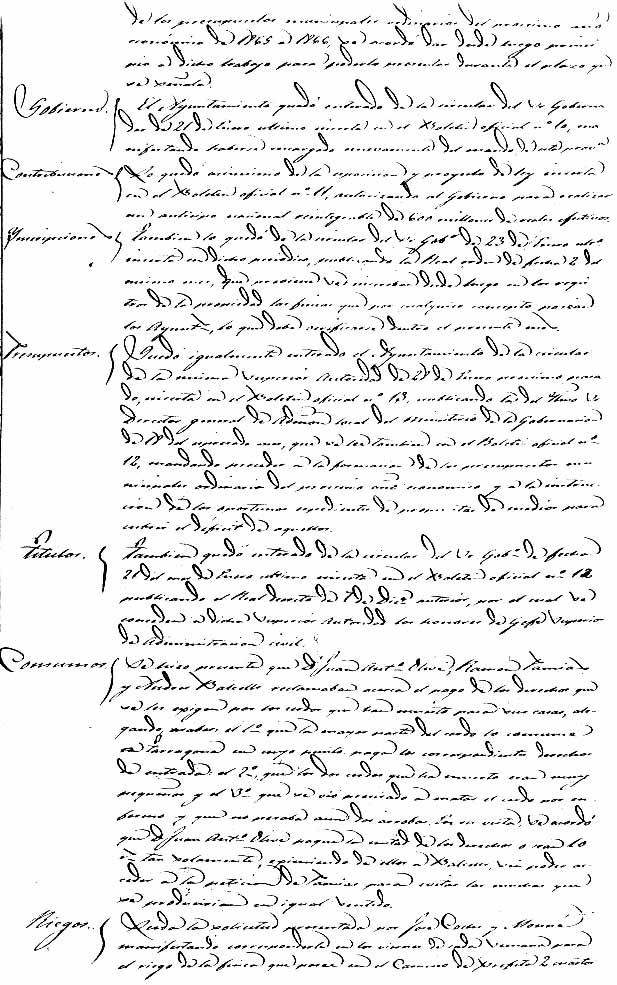 de los presupuestos municipales ordinarios del proximo año
económico de 1865 á 1866, se acordó dar desde luego princi
pio a dicho trabajo para poderlo mandar durante el plazo qe
se señala.
Gobierno. El Ayuntamiento quedó enterado de la circular del Sr Goberna
dor de 21 de Enero ultimo inserta en el Boletin oficial nº 10, ma
nifestando haberse encargado nuevamente del mando de esta provª
Contribuciones Lo quedó asimismo de la esposicion y proyecto de ley inserta
en el Boletin oficial nº 11, autorizando al Gobierno para realizar
un anticipo nacional reintegrable de 600 millones de reales efectivos.
Inscripciones Tambien lo quedó de la circular del Sr Gobr de 23 de Enero
inserta en dicho periódico, publicando la Real orden de fecha 2 del
mismo mes, que previene se inscriban desde luego en los regis
tros de la propiedad las fincas que por cualquier concepto posean
los Ayuntos, lo que debe verificarse dentro el presente año.
Presupuestos. Quedó igualmente enterado el Ayuntamiento de la circular
de la misma Superior Autoridad de 28 de Enero proximo pasa
do, inserta en el Boletin oficial nº 13, publicando la del Ilmo Sr
Director general de Admon local del Ministerio de la Gobernacion
de del espresado mes, que se lee tambien en el Boletin oficial nº
12, mandando proceder a la formacion de los presupuestos mu
nicipales ordinarios del proximo año economico y a la instruc
cion de los oportunos expedientes de propuestas de medios para
cubrir el deficit de aquellos.
Titulos. Tambien quedó enterado de la circular del Sr Gobr de fecha
21 del mes de Enero ultimo inserta en el Boletin oficial nº 12
publicando el Real decreto de 7 de Dicre anterior, por el cual se
conceden a dicha Superior Autoridad los honores de Gefe Superior
de Administracion civil.
Consumos Se hizo presente que D. Juan Antº Olivé, Ramon Tarrias
y Andres Batelle reclamaban acerca el pago de los derechos que
se les exigen por los cerdos que han muerto para sus casas, ale
gando, a saber: el 1º que la mayor parte del cerdo lo consume
en Tarragona en cuyo punto paga los correspondientes derechos
de entrada, el 2º que los dos cerdos que ha muerto eran muy
pequeños y el 3º que se vió precisado a matar el cerdo por en
fermo y que no pesaba aun dos arrobas. En su vista, se acordó
que D. Juan Antº Olivé pague la mitad de los derechos o sean 10
rs tan solamente, eximiendo de ellos a Batelle, sin poder ac
ceder a la peticion de Tarrias para evitar las muchas que
se producirian en igual sentido.
Riegos. Leida la solicitud presentada por José Codes y Monné
manifestando corresponderle en los viernes de cada semana para
el riego de la finca que posee en el Camino de 2 cuartos